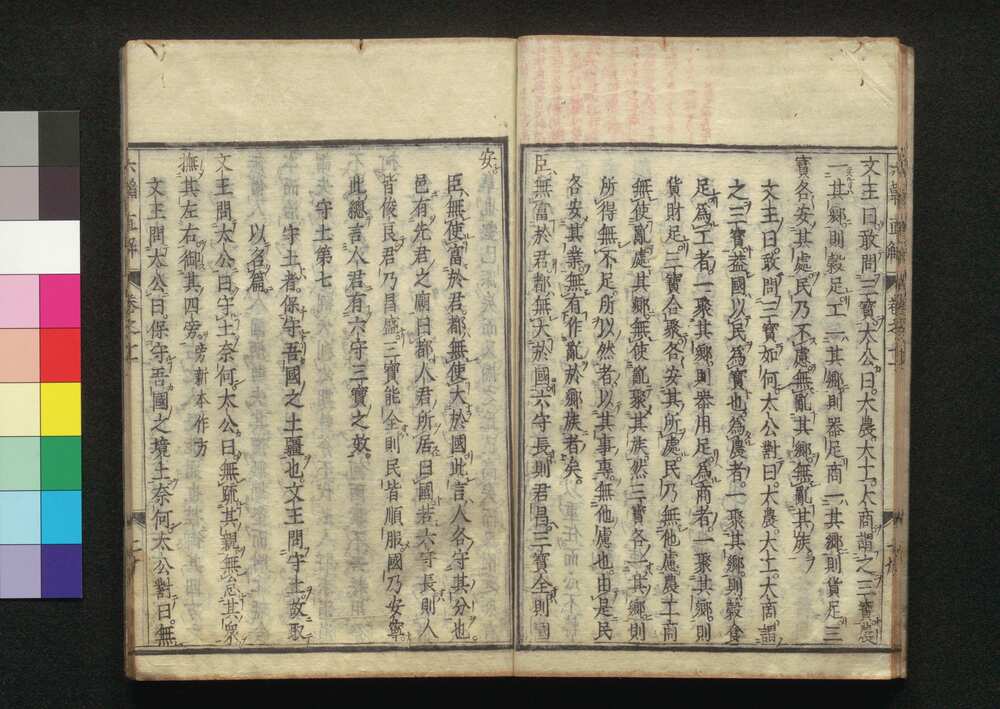 文王曰敢問三寶太公曰大農大工大商謂之三寶農
一其鄉則穀足工一其鄉則器足商一其鄉則貨足三
寶各安其處民乃不慮無亂其鄉無亂其族
文王曰敢問三寶如何太公對曰大農大工大商謂
之三寶蓋國以民爲寶也爲農者一聚其鄉則穀食
足爲工者一聚其鄉則器用足爲商者一聚其鄉則
貨財足三寶合聚各安其所處民乃無他慮農工商
無使亂處其鄉無使亂聚其族然三寶各一其鄉則
所得無不足所以然者以其事專無他慮也由是民
各安其業無有作亂於鄉族者矣
臣無富於君都無大於國六守長則君昌三寶全則國
安
臣無使富於君都無使大於國此言人各守其分也
邑有先君之廟曰都人君所居曰國若六守長則人
皆俊良君乃昌盛三寶能全則民皆順服國乃安寧
此總言人君有六守三寶之效
守土第七
守土者保守吾國之土疆也文王問守土故取
以名篇
文王問太公曰守土奈何太公曰無疏其親無怠其衆
撫其左右御其四旁旁新本作方
文王問太公曰保守吾國之境土奈何太公對曰無
六韜直解 卷之上